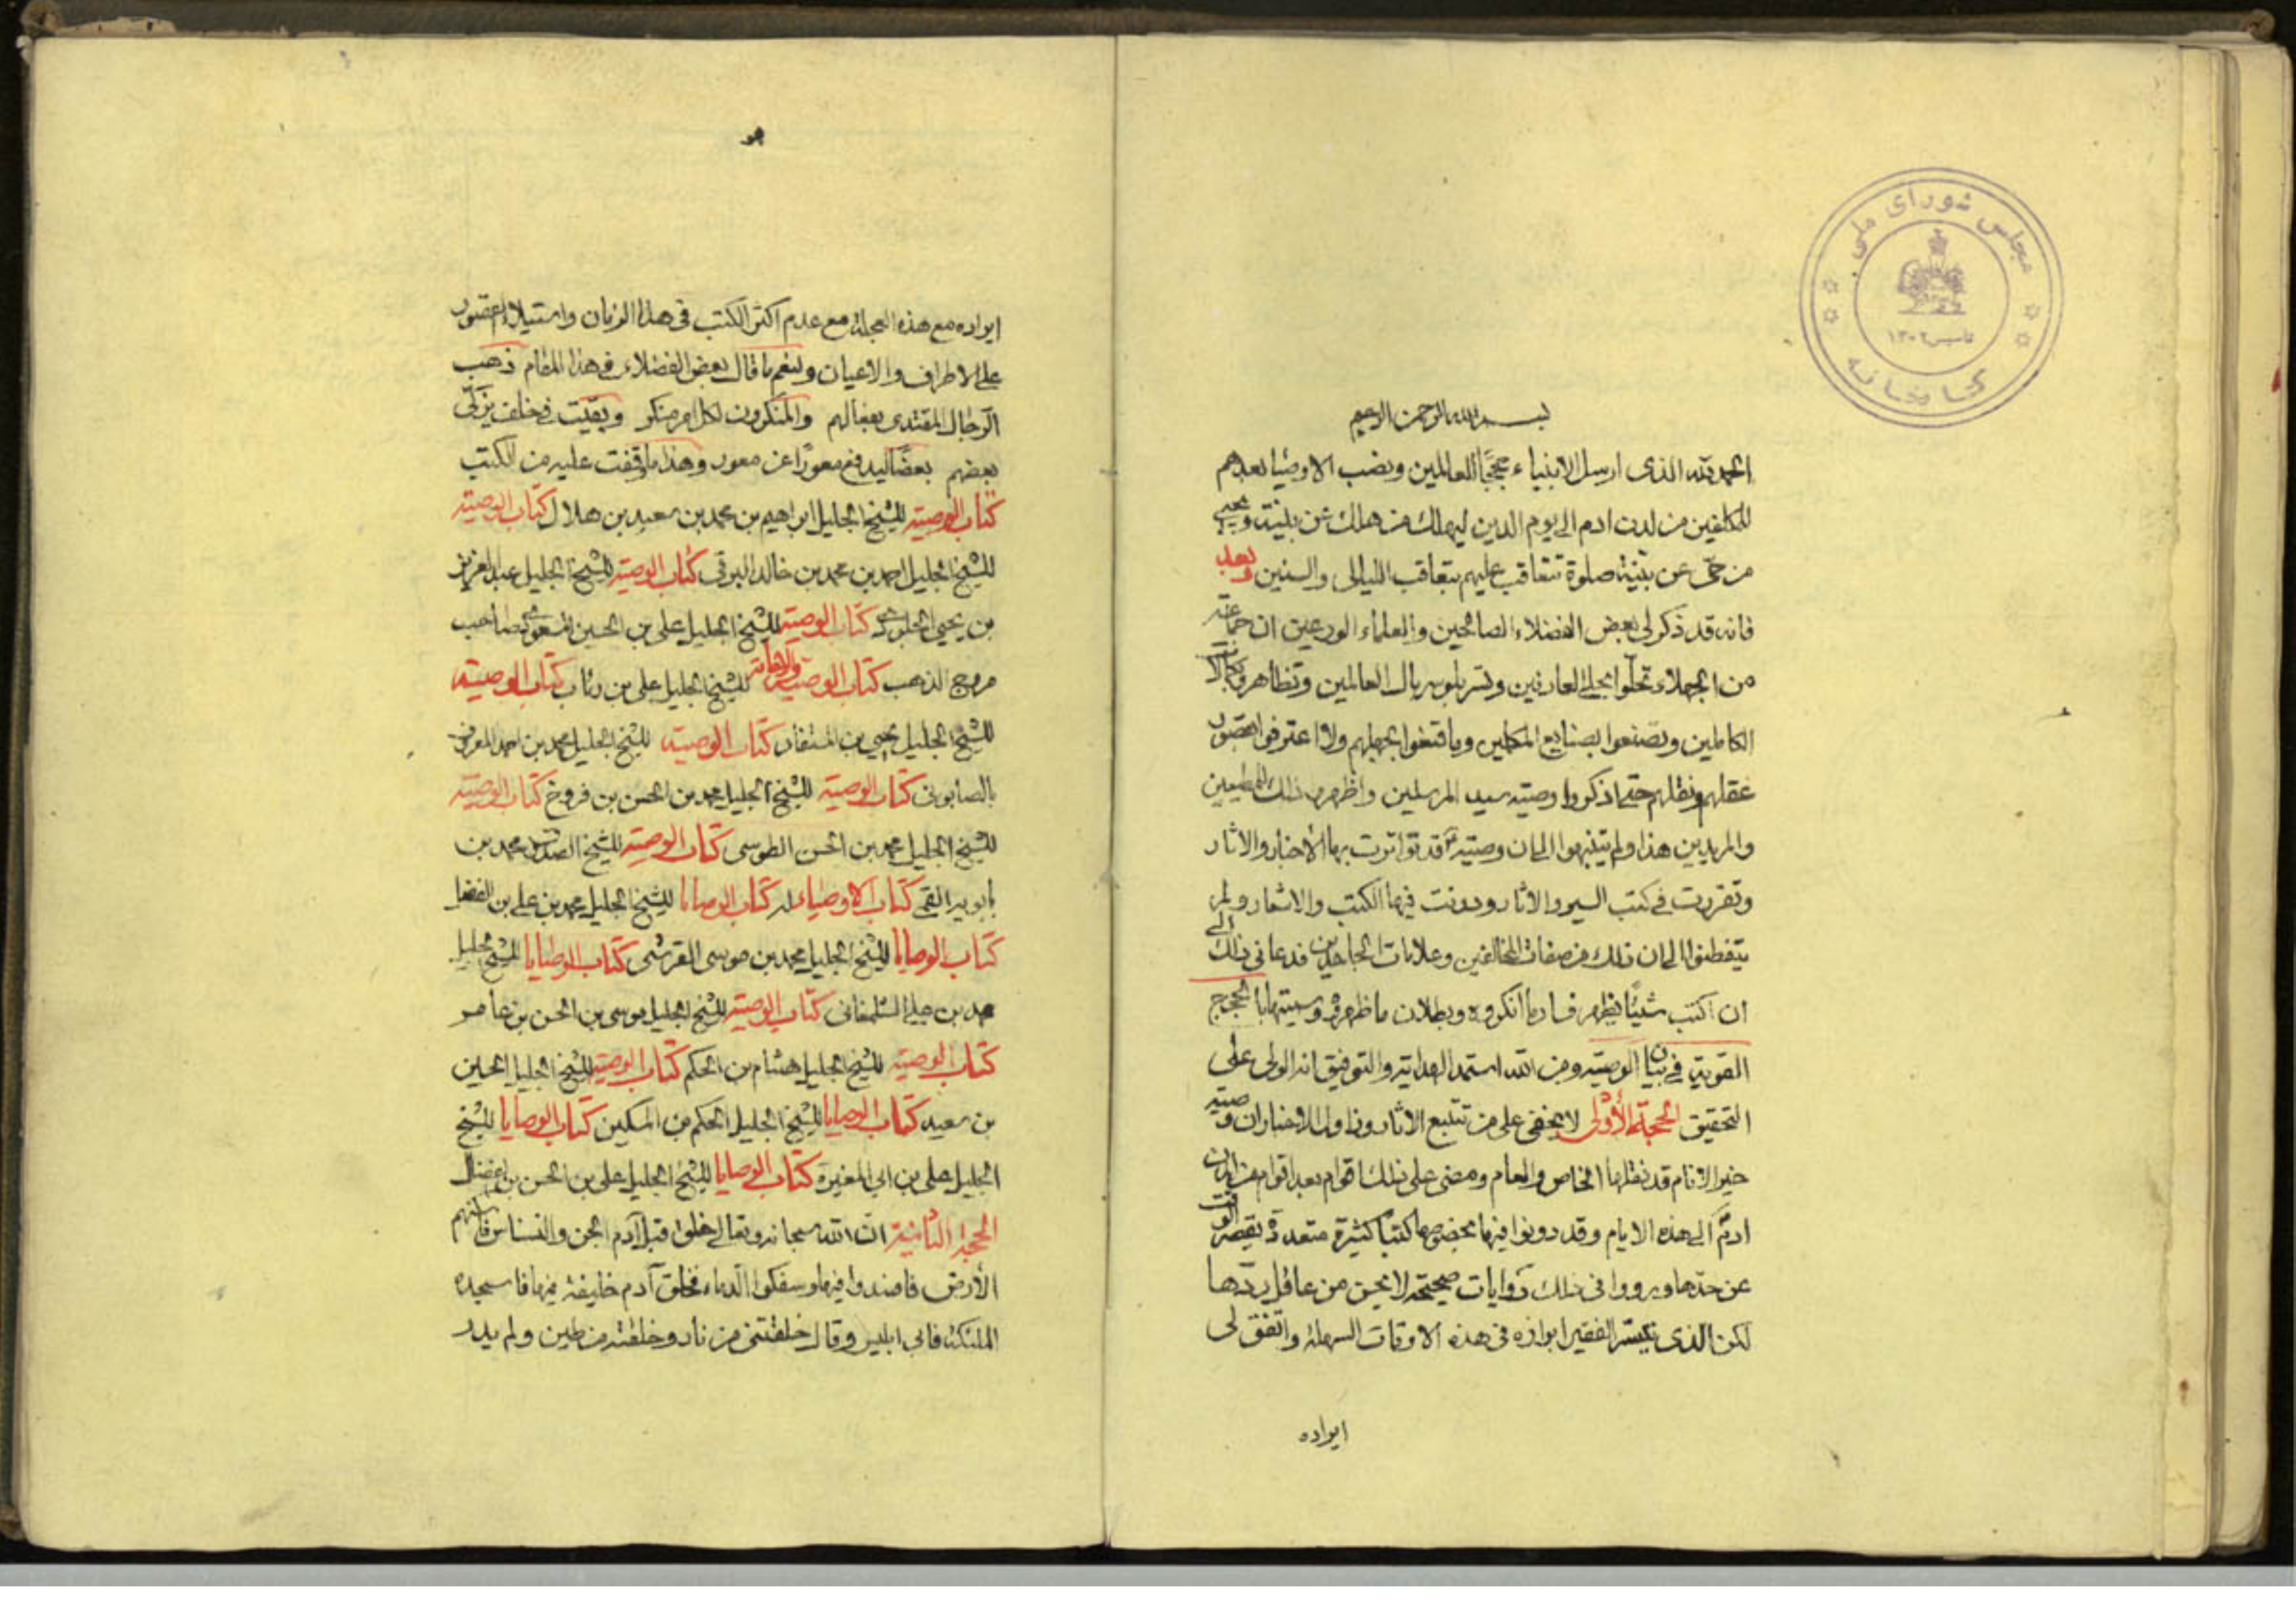 مجلس شورای ملی
تاسیس ۱۳۰۲
کتابخانه
بسم الله الرحمن الرحیم
الحمد لله الذی ارسل الانبیاء حججًا للعالمین ونصب الاوصیا بعدهم
للمکلفین من لدن ادم الی یوم الدین لیهلک من هلک عن بینة ویحیی
من حیّ عن بینة صلوة تتعاقب علیهم بتعاقب اللیالی والسنین وبعد
فانه قد ذکر لی بعض الفضلاء الصالحین والعلماء الورعین ان جماعة
من الجهلاء تحلّوا بحلی العارفین وتسربلوا سربال العالمین وتظاهروا بکمالات
الکاملین وتصنعوا بصنایع المکملین وما قنعوا بجهلهم ولا اعترفوا بقصور
عقلهم ونقلهم حتی انکروا وصیته سید المرسلین واظهروا ذلک للمطیعین
والمریدین هذا ولم یتنبهوا الی ان وصیته قد تواترت بها الاخبار والاثار
وتقررت فی کتب السیر والاثار ودونت فیها الکتب والاشعار ولم
یتفطنوا الی ان ذلک من صفات المخالفین وعلامات الجاحدین فدعانی ذلک الی
ان اکتب شیئًا یظهر فساد ما انکروه وبطلان ما ظهروه وسمیتها بالحجج
القویة فی بیان الوصیته ومن الله استمد الهدایة والتوفیق انه الولی علی
التحقیق الحجة الأولی لا یخفی علی من تتبع الاثار وزاول الاخبار ان وصیته
خیر الانام قد نقلها الخاص والعام ومضی علی ذلک اقوام بعد اقوام من لدن
ادم الی هذه الایام وقد دونوا فیها بخصوصها کتبا کثیرة متعددة یقصر الوقت
عن حدّها ورووا فی ذلک روایات صحیحة لا یحسن من عاقل ردّها
لکن الذی تیسّر الفقیر ایراده فی هذه الاوقات السهلة واتفق لی
ایراده
هو
ایراده مع هذه العجلة مع عدم اکثر الکتب فی هذا الزمان واستیلاء القصور
علی الاطراف والاعیان ولنعم ما قال بعض الفضلاء فی هذا المقام ذهب
الرجال المقتدی بفعالهم والمنکرون لکل امر منکر وبقیت فی خلف یزکّی
بعضهم بعضًا لیدفع معورًا عن معور وهذا ما وقفت علیه من الکتب
کتاب الوصیته للشیخ الجلیل ابراهیم بن محمد بن سعید بن هلال کتاب الوصیته
للشیخ الجلیل احمد بن محمد بن خالد البرقی کتاب الوصیته للشیخ الجلیل عبد العزیز
بن یحیی الجلودی کتاب الوصیته للشیخ الجلیل علی بن الحسین المسعودی صاحب
مروج الذهب کتاب الوصیته والامامة للشیخ الجلیل علی بن رئاب کتاب الوصیته
للشیخ الجلیل یحیی بن المستفاد کتاب الوصیته للشیخ الجلیل محمد بن احمد المعروف
بالصابونی کتاب الوصیته للشیخ الجلیل محمد بن الحسن بن فروخ کتاب الوصیته
للشیخ الجلیل محمد بن الحسن الطوسی کتاب الوصیته للشیخ الصدوق محمد بن
بابویه القمی کتاب الاوصیاء له کتاب الوصایا للشیخ الجلیل محمد بن علی بن الفضل
کتاب الوصایا للشیخ الجلیل محمد بن موسی القرشی کتاب الوصایا للشیخ الجلیل
محمد بن علی الشلمغانی کتاب الوصیته للشیخ الجلیل موسی بن الحسن بن عامر
کتاب الوصیته للشیخ الجلیل هشام بن الحکم کتاب الوصیته للشیخ الجلیل الحسین
بن سعید کتاب الوصایا للشیخ الجلیل الحکم بن المسکین کتاب الوصایا للشیخ
الجلیل علی بن ابی المغیرة کتاب الوصایا للشیخ الجلیل علی بن الحسن بن فضال
الحجة الثانیة انّ الله سبحانه وتعالی خلق قبل آدم الجن والنسناس فاسکنهم
الأرض فافسدوا فیها وسفکوا الدماء فخلق آدم خلیفة فیها فاسجده
الملئکة فابی ابلیس وقال خلقتنی من نار وخلقته من طین ولم یدر